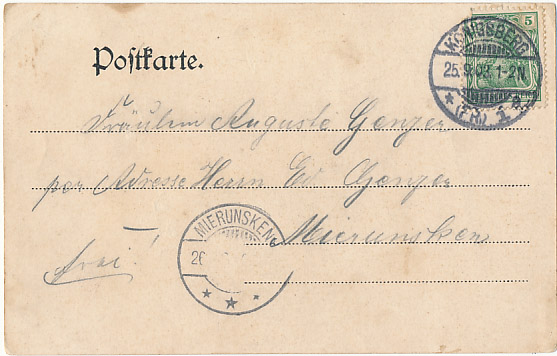 5
KÖNIGSBERG
25.9.03.1-2N.
* (PR.) 1
Postkarte.
Fräulein Auguste Genger
per Adresse Herrn Ed Genger
MIERUNSKEN
26
Mierunsken
frei!